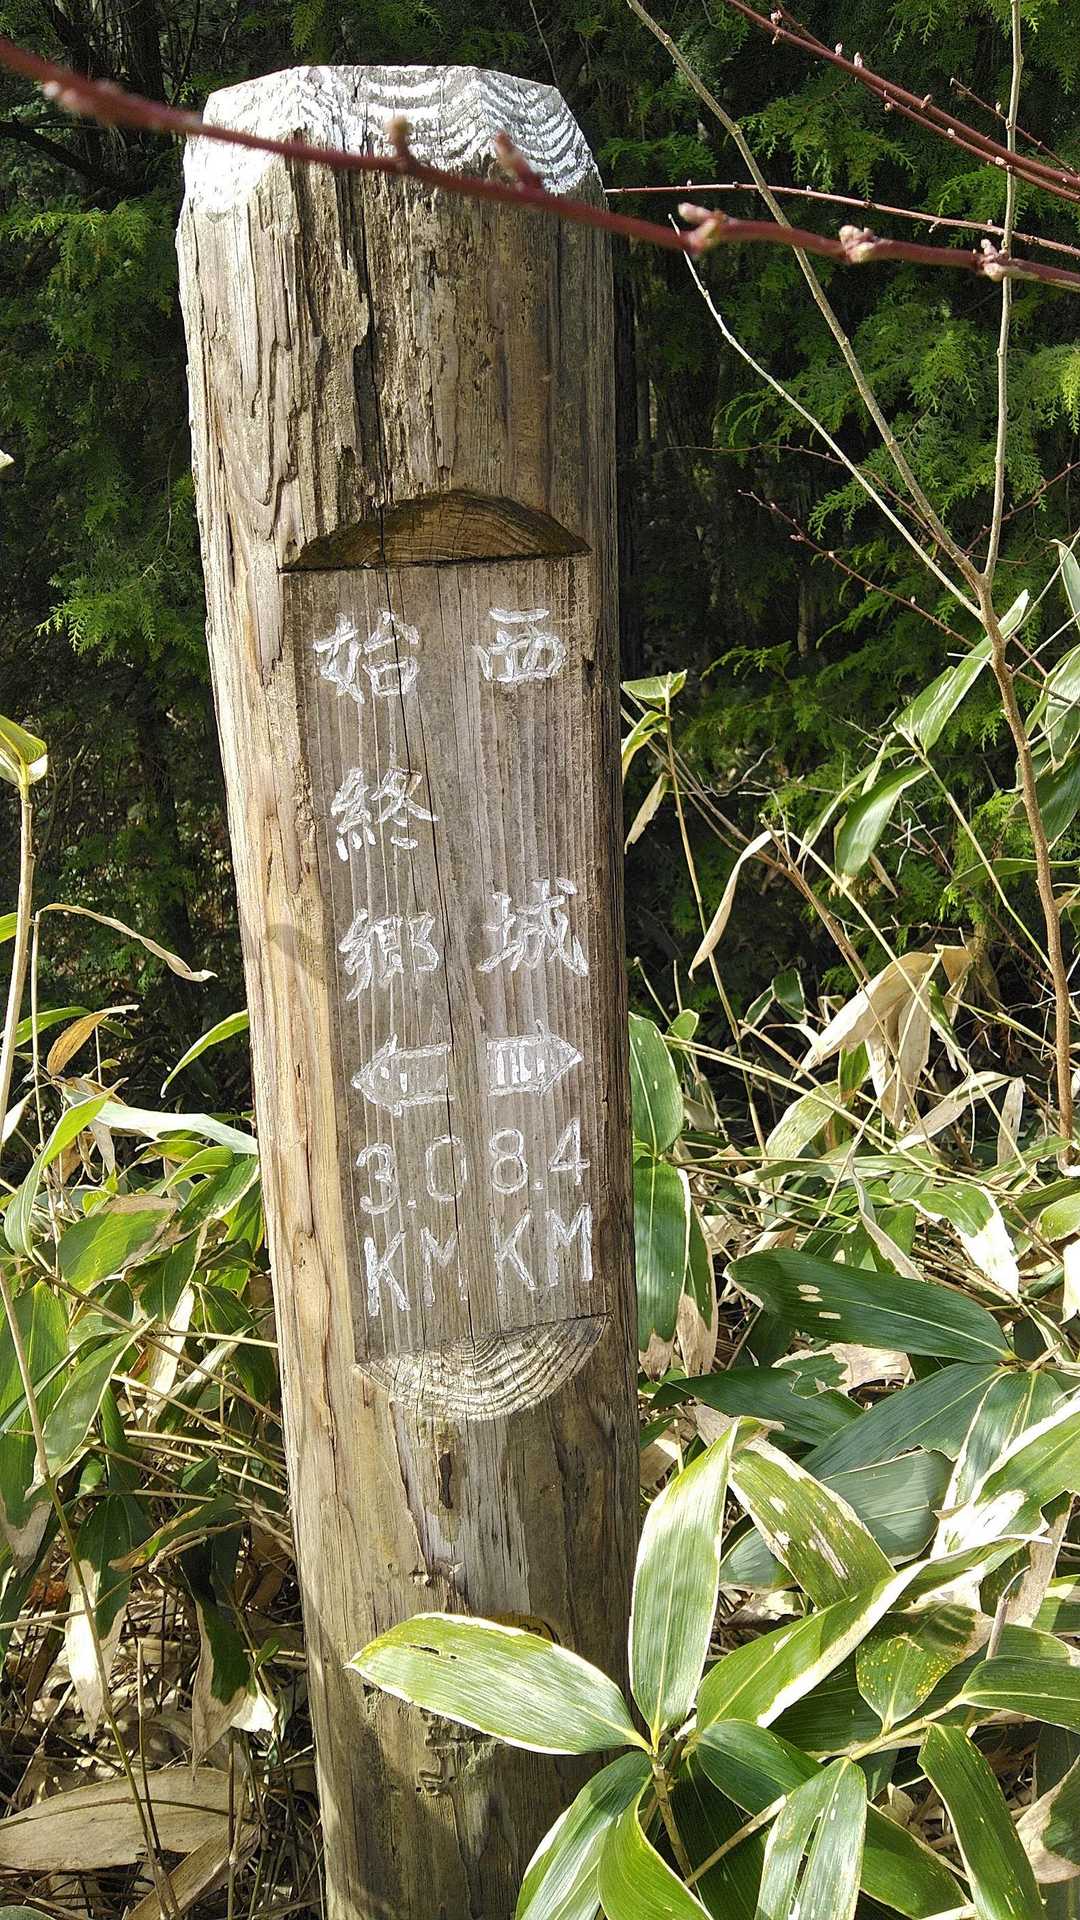 西城
➡
8.4
KM
始終郷
⬅
3.0
KM